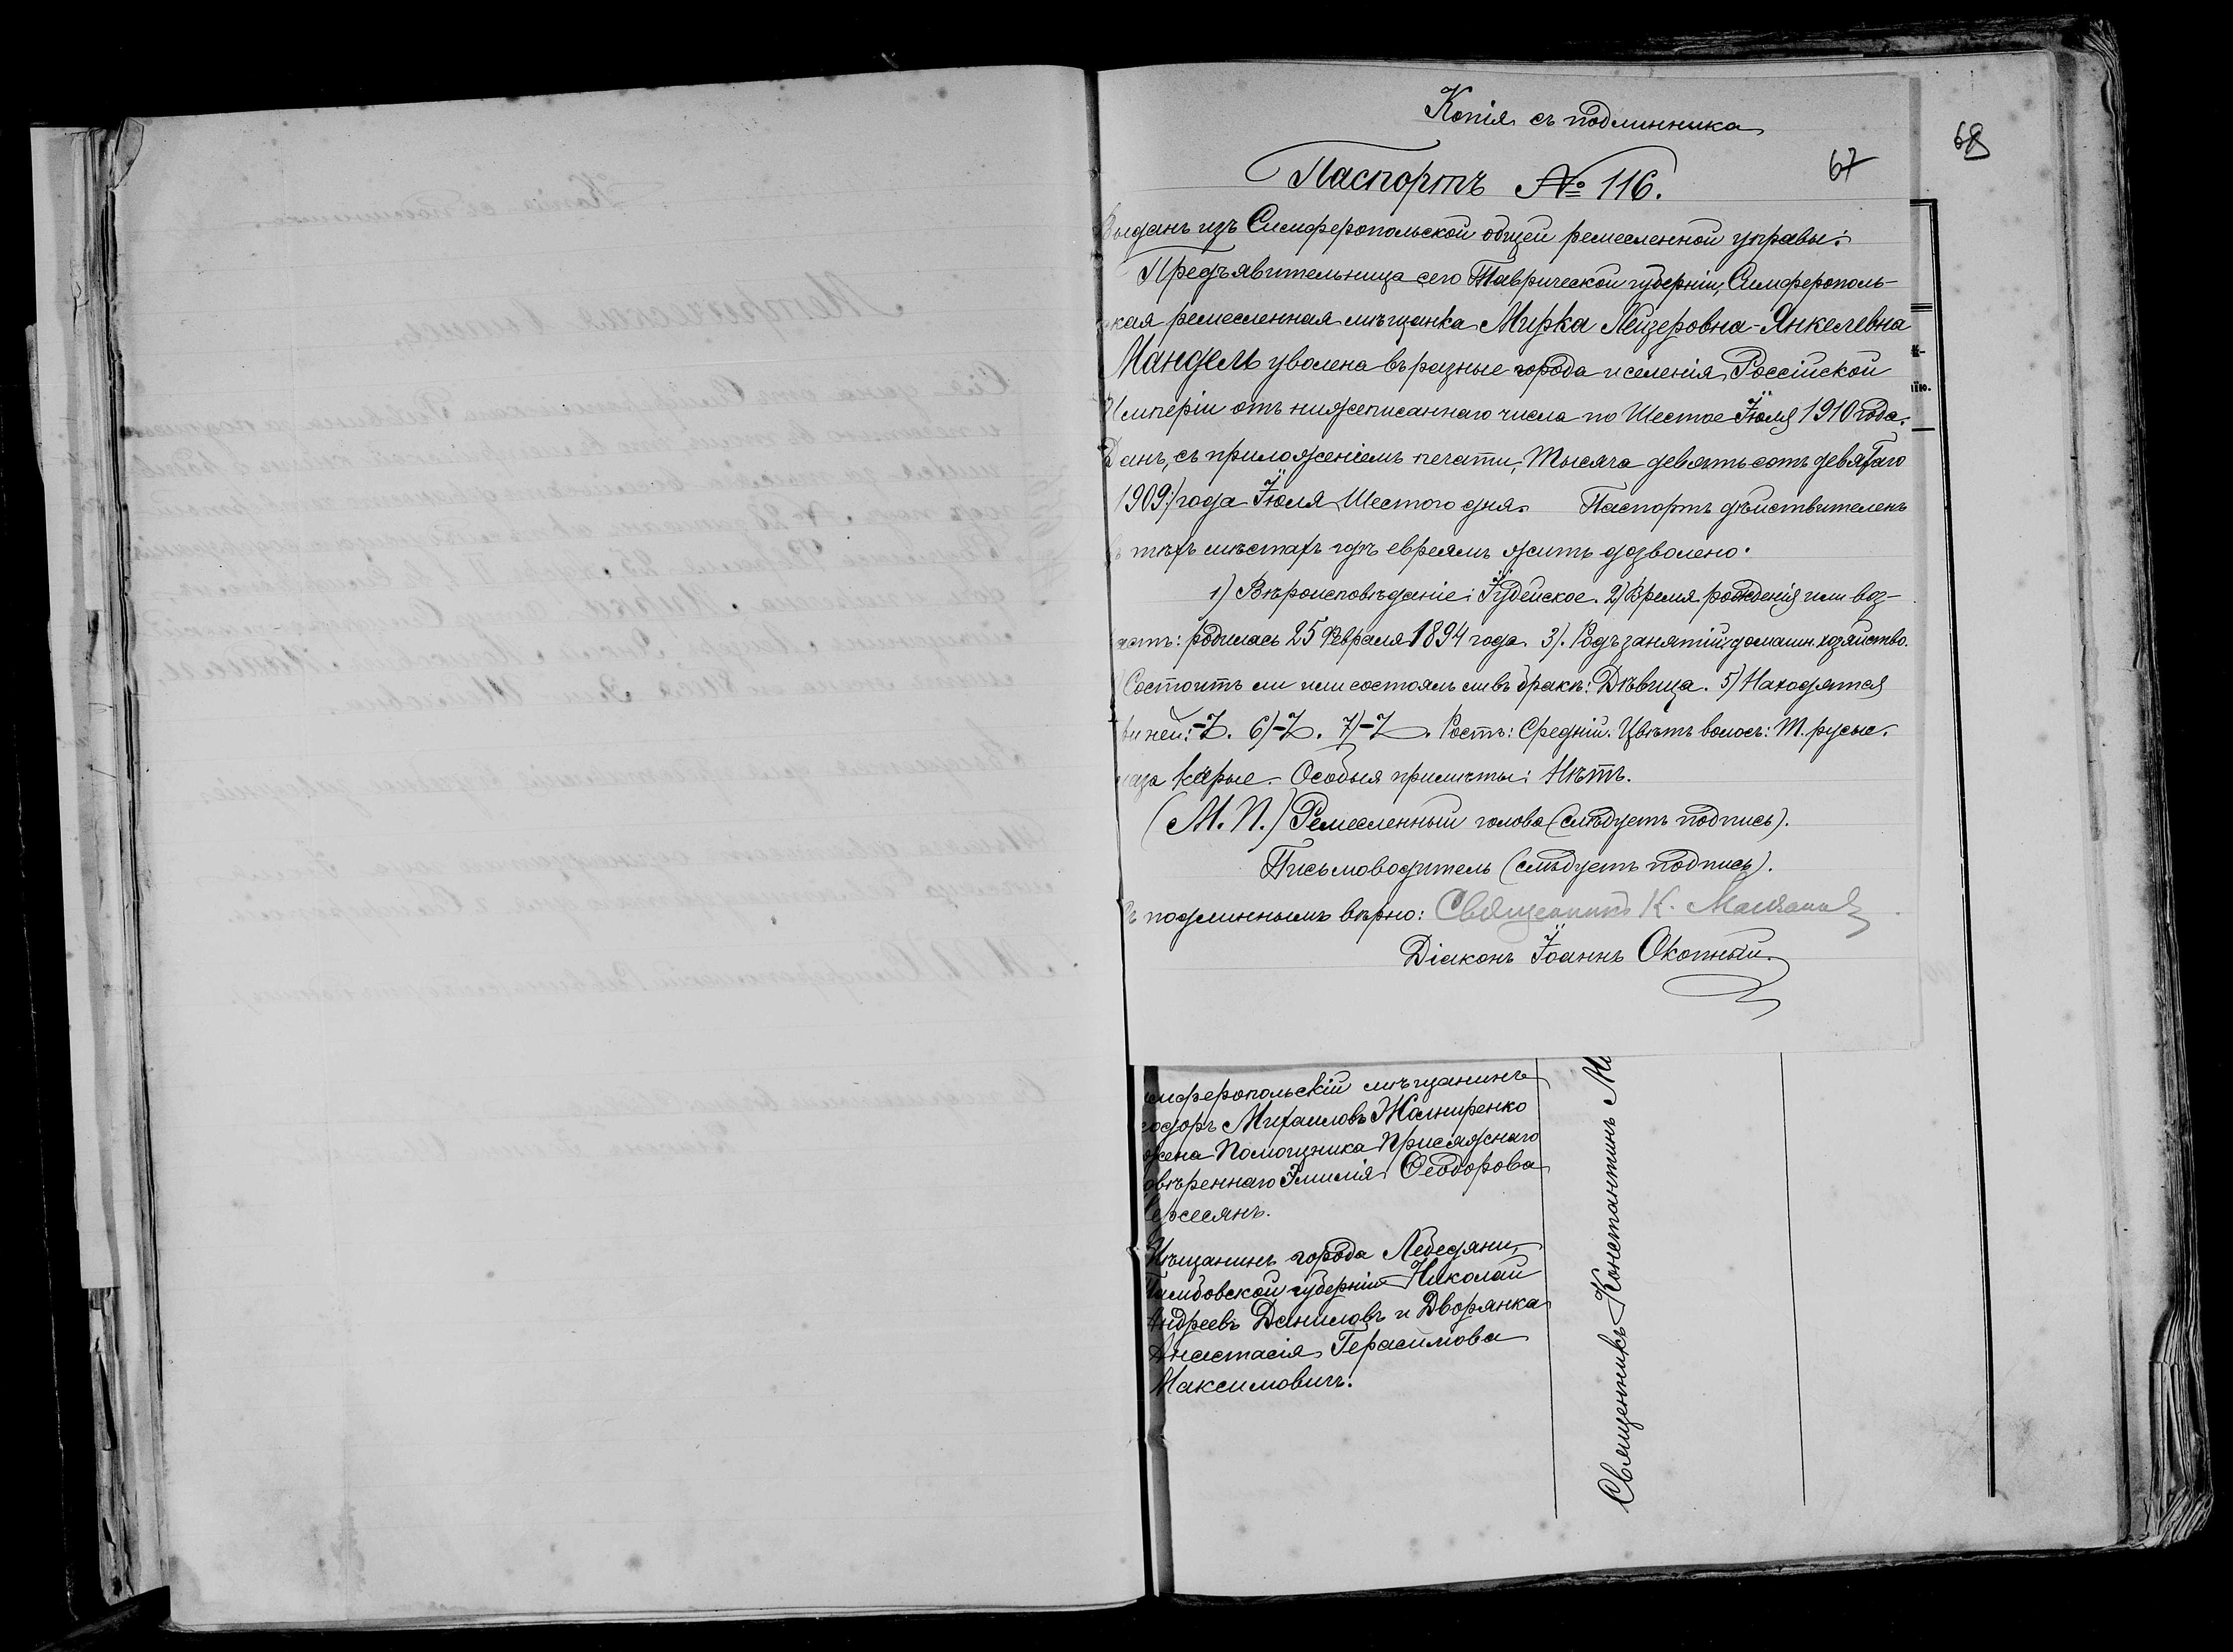 Копія съ подлинника
67
68
Паспортъ № 116.
Выданъ изъ Симферопольской общей ремесленной управы:
Предъявительница сего Таврической губерніи, Симферополь-
ская ремесленная мѣщанка Мирка Лейзеровна-Янкелевна
Мандель уволена въ разные города и селенія Россійской
Имперіи отъ нижеписаннаго числа по Шестое Іюля 1910 года.
Данъ, съ приложеніемъ печати, Тысяча девятьсотъ девятаго
1909/ года Іюля Шестого дня. Паспортъ дѣйствителенъ
въ тѣхъ мѣстахъ гдѣ евреямъ жить дозволено.
1) Вѣроисповѣданіе: Іудейское. 2) Время рожденія или воз-
растъ: родилась 25 Февраля 1894 года. 3). Родъ занятій: домашн. хозяйство.
Состоитъ ли или состоялъ ли въ бракѣ: Дѣвица. 5) Находятся
при ней: -Z. 6) -Z. 7) -Z. Ростъ: Средній. Цвѣтъ волосъ: Т. русые.
глаза Карые. Особыя примѣты: Нѣтъ.
(М. П.) Ремесленный голова (слѣдуетъ подпись).
Письмоводитель (слѣдуетъ подпись).
Съ подлиннымъ вѣрно: Священникъ К.
Діаконъ Іоаннъ Окопный.
имферопольскій мѣщанинъ
еодоръ Михаиловъ Жолниренко
жена Помощника Присяжнаго
овѣреннаго Эмилія Ѳеодорова
Мѣщанинъ города Лебедяни,
Тамбовской губерніи Николай
Андреевъ Даниловъ и Дворянка
Анастасія Герасимова
Максимовичъ.
Священникъ Константинъ